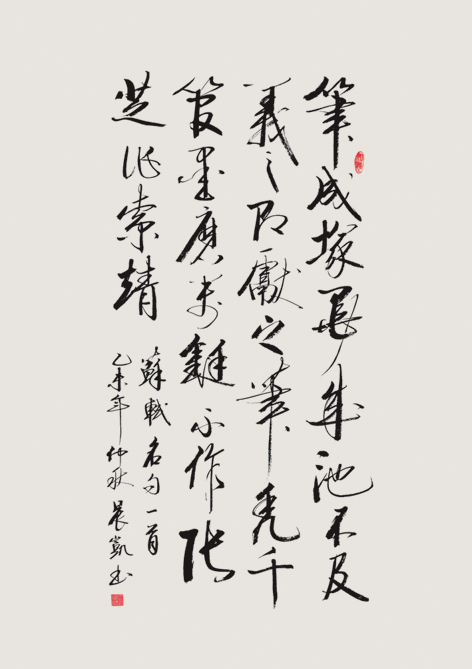 筆成塚墨成池不及
羲之即獻之筆禿千
管墨磨万鋌不作張
芝作索靖
蘇軾名句一首
乙未年仲秋晨凱书